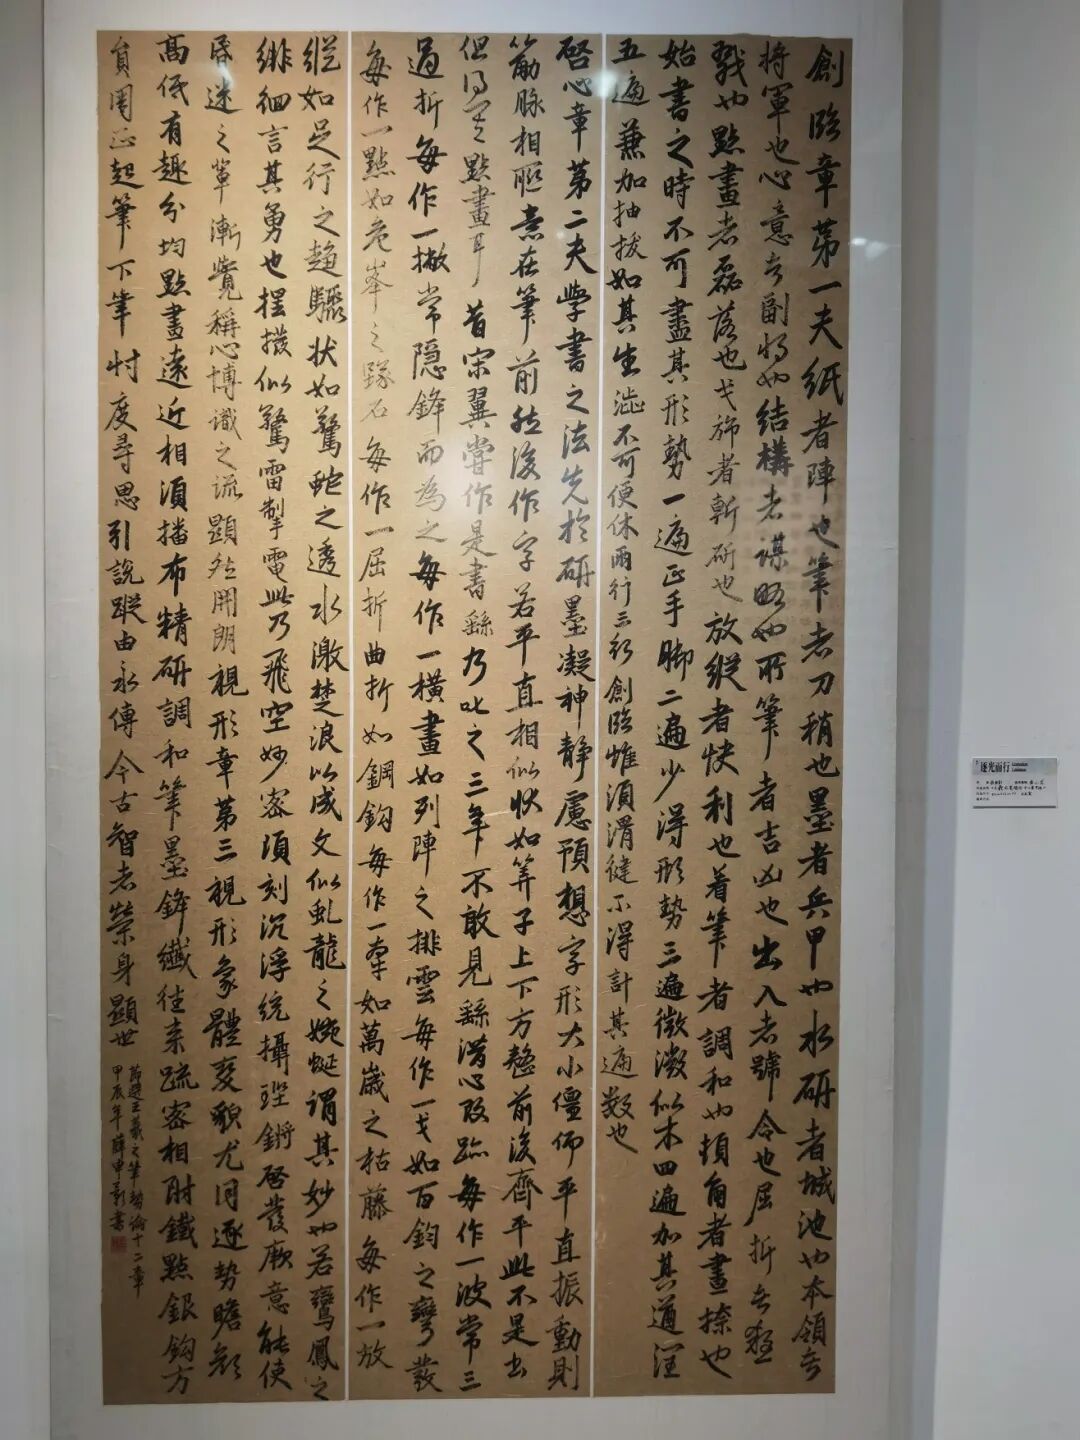 創臨章第一夫紙者陣也筆者刀矟也墨者兵甲也水研者城池也本領者
將軍也心意者副將也結構者謀略也所筆者吉凶也出入者號令也屈折者殺
戮也點畫者磊落也戈旆者斬斫也放縱者快利也着筆者調和也頓角者畫捺也
始書之時不可盡其形勢一遍正手脚二遍少得形勢三遍微微似本四遍加其遒潤
五遍兼加抽拔如其生澁不可便休兩行三行創臨惟須滑健不得計其遍數也
啓心章第二夫學書之法先於研墨凝神靜慮預想字形大小偃仰平直振動則
筋脉相聯意在筆前然後作字若平直相似狀如筭子上下方整前後齊平此不是書
但得其點畫耳昔宋翼嘗作是書繇乃叱之三年不敢見繇潛心改跡每作一波常三
過折每作一撇常隱鋒而為之每作一橫畫如列陣之排雲每作一戈如百鈞之弩發
每作一點如危峯之墜石每作一屈折曲折如鋼鈎每作一牽如萬歲之枯藤每作一放
縱如足行之趨驟狀如驚蛇之透水激楚浪以成文似虬龍之蜿蜒謂其妙也若鸞鳳之
徘徊言其勇也擺撥似驚雷掣電此乃飛空妙密頃刻沉浮統攝鏗鏘啓發厥意能使
昏迷之輩漸覺稱心博識之流顯然開朗視形章第三視形象體變貌尤同逐勢瞻顏
高低有趣分均點畫遠近相須播布精研調和筆墨鋒纖往來疏密相附鐵點銀鈎方
負周正起筆下筆忖度尋思引說蹤由永傳今古智者榮身顯世
節選王羲之筆勢論十二章
甲辰年薛申彩書
逐光而行